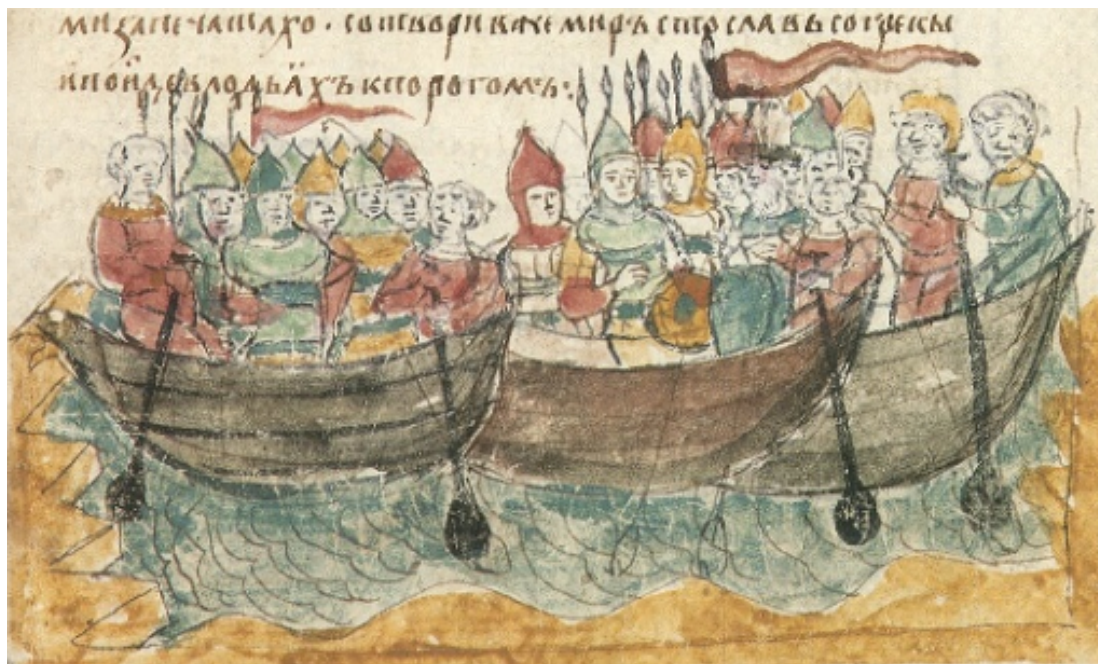 мизапечашахо · сотворивже миръ стославъ согрекы
ипоиде влодьӓхъ кпорогомъ: